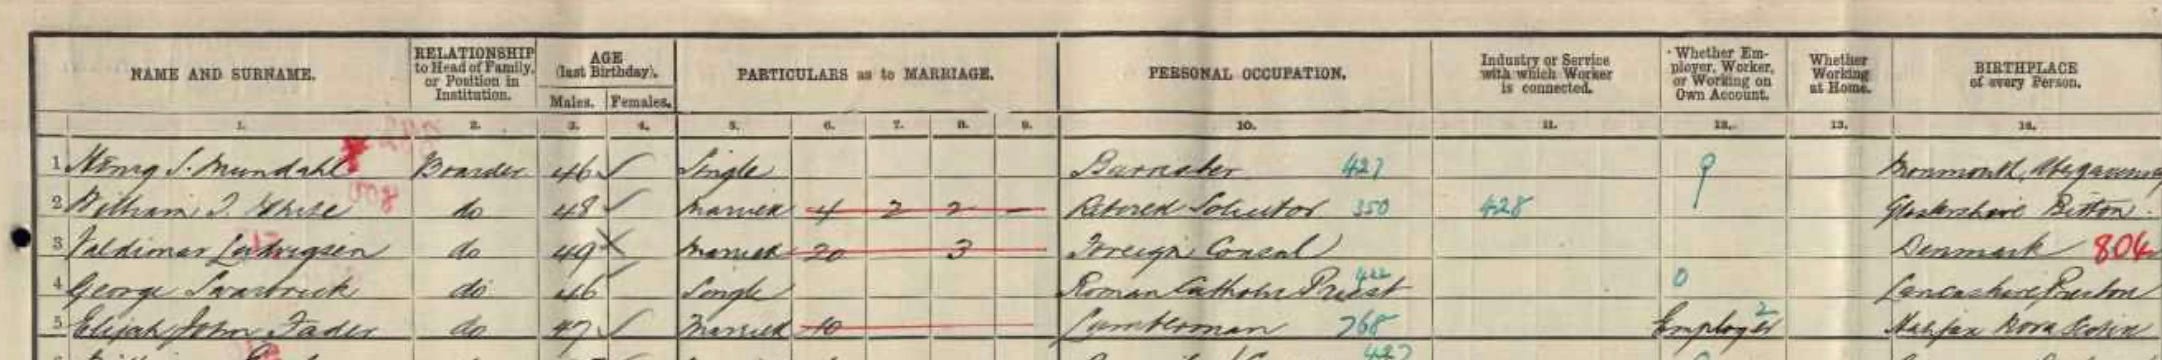 NAME AND SURNAME. RELATIONSHIP to Head of Family, or Position in Institution. AGE (last Birthday). Males. Females. PARTICULARS as to MARRIAGE. PERSONAL OCCUPATION. Industry or Service with which Worker is connected. Whether Employer, Worker, or Working on Own Account. Whether Working at Home. BIRTHPLACE of every Person.
1. 2. 3. 4. 5. 6. 7. 8. 9. 10. 11. 12. 13. 14.
1 Henry S. Mundahl Boarder 46 Single Barrister 427 9 Monmouth, Abergavenny
2 William J. White do 48 Married 4 2 2 – Retired Solicitor 350 428 Bitton
3 Valdimar Ludvigsen do 49 Married 20 3 Foreign Consul Denmark 804
4 George Swarbrick do 46 Single Roman Catholic Priest 422 0 Lancashire Preston
5 Elijah John Fader do 47 Married 10 Lumberman 768 Employer 2 Halifax Nova Scotia
427